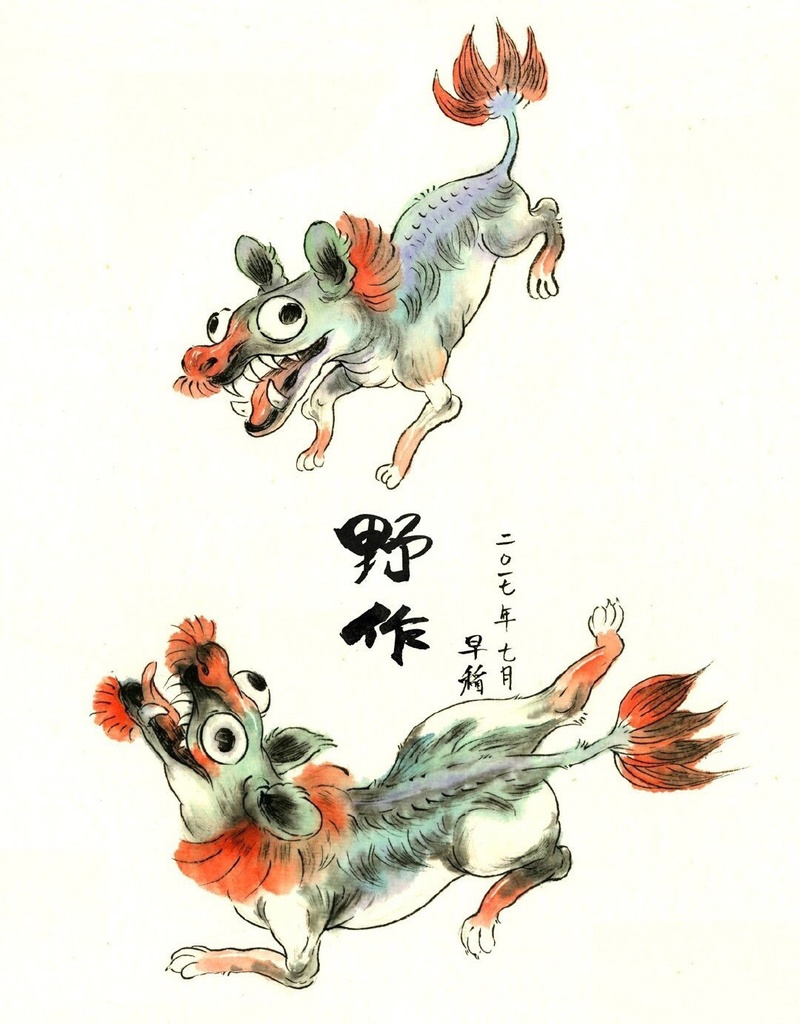 野作
二〇一七年七月
早稻